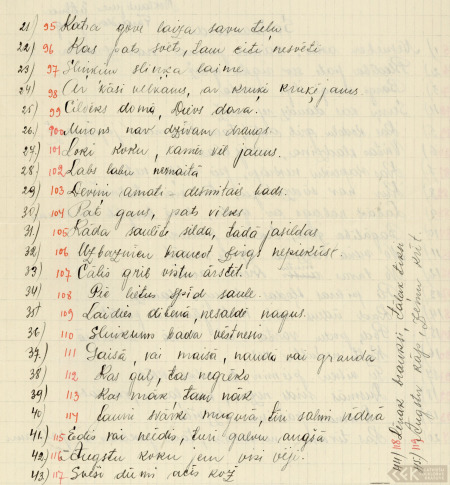 21) 95 Katra govs laiza savu teļu
22) 96 Kas pats svēts, tam citi nesvēti
23) 97 slinka laime
24) 98 Ar ķāsi velkams, ar kruķi kruķējams.
25) 99 Cilvēks domā, Dievs dara.
26) 100 Mirons nav dzīvam draugs.
27) 101 Loki koku, kamēr vēl jauns.
28) 102 Labs labu nemaitā
29) 103 Deviņi amati - desmitais bads.
30) 104 Pats gans, pats vilks
31) 105 Kāda saulīte silda, tādā jāsildas
32) 106 Uz braucot zirgs nepiekūst.
33) 107 Cālis grib vistu ārstēt.
34) 108 Pēc lietus spīd saule.
35) 109 Laidies dībenā, nesaldē nagus.
36) 110 Slinkums bada vēstnesis
37) 111 Gaisā, vai maisā, naudā vai graudā
38) 112 Kas guļ, tas negrēko
39) 113 Kas māk tam nāk
40) 114 Jauni svārki mugurā, tīri salmi vidērā
41) 115 Ēdis vai neēdis, turi galvu augšā
42) 116 Augstu koku jem visi vēji.
43) 117 Sveši dūmi acis kož
44) 118 Lēnāk brauksi, tālāk tiksi
45) 119 Augstu kāpj, zemu krīt.